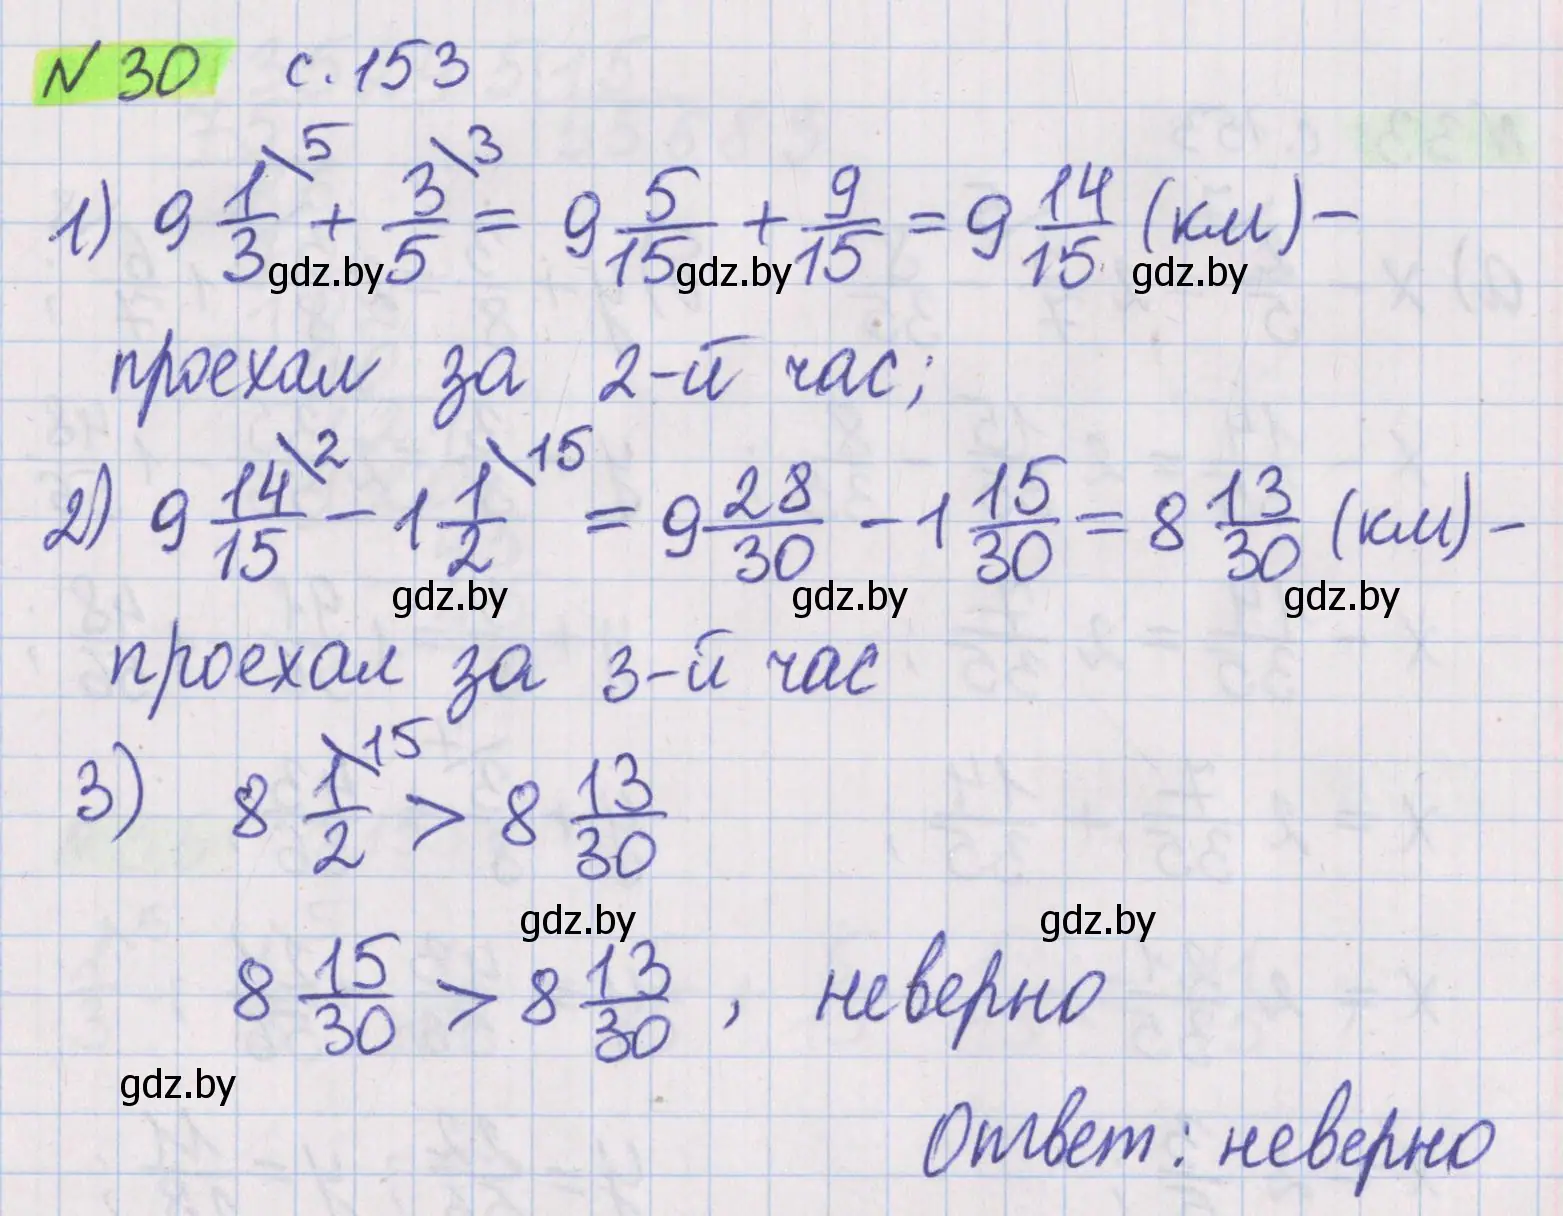 N 30 с. 153
1) 9 1/3 \5 + 3/5 \3 = 9 5/15 + 9/15 = 9 14/15 (км) –
gdz.by gdz.by gdz.by
проехал за 2-й час;
2) 9 14/15 \2 – 1 1/2 \15 = 9 28/30 – 1 15/30 = 8 13/30 (км) –
gdz.by gdz.by gdz.by
проехал за 3-й час
3) 8 1/2 \15 > 8 13/30
gdz.by gdz.by
8 15/30 > 8 13/30, неверно
gdz.by
Ответ: неверно